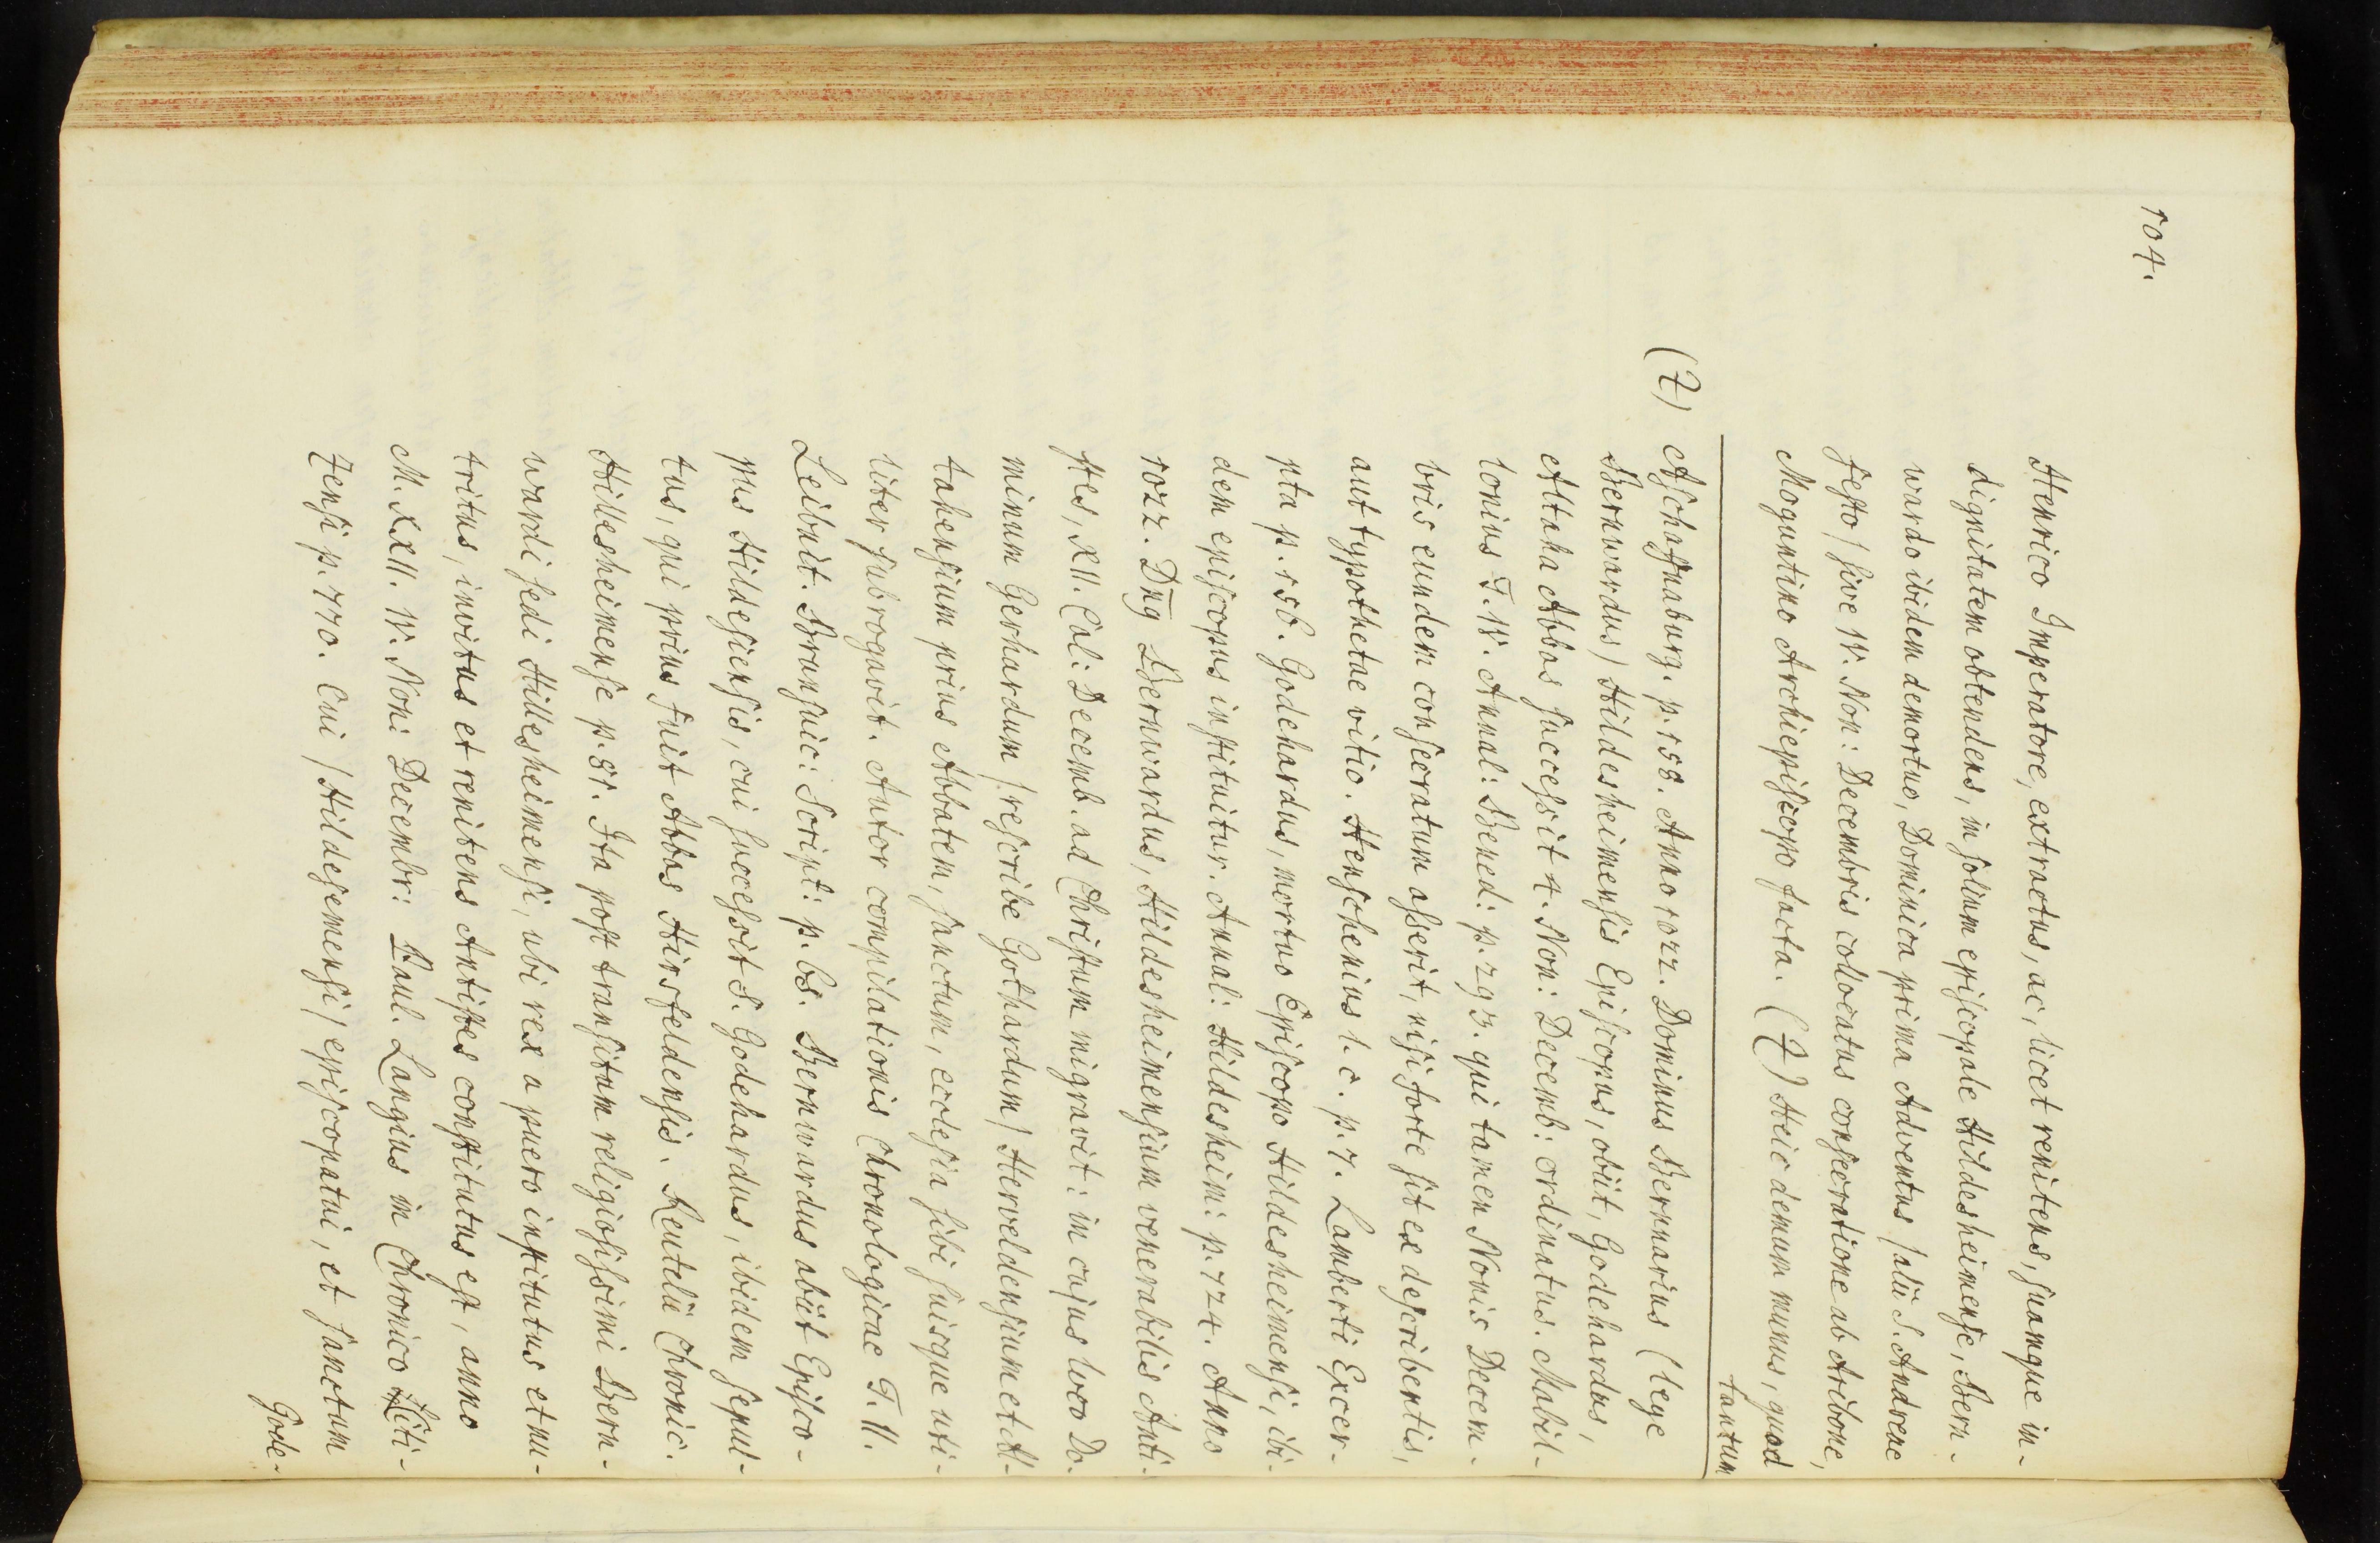 104.
Henrico Imperatore, extractus, ac, licet renitens, suamque in-
dignitatem obtendens, in solium episcopale Hildesheimense, Bern-
wardo ibidem demortuo, Dominica prima Adventus /aliis S. Andreae
festo / sive IV. Non: Decembris collocatus consecratione ab Aribone,
Moguntino Archiepiscopo facta. (7) Heic demum munus, quod
tantum
(7) Aschafnaburg. p. 158. Anno 1022. Dominus Bernnarius (lege
Bernwardus) Hildesheimensis Episcopus, obiit, Godehardus,
Altaha Abbas successit 4. Non: Decemb: ordinatus. Mabil-
lonius T. IV. Annal: Bened: p. 293. qui tamen Nonis Decem-
bris eundem consecratum asserit, nisi forte sit ex describentis,
aut typothetae vitio. Henschenius l. c. p. 7. Lamberti Excer-
pta p. 156. Godehardus, mortuo Episcopo Hildesheimensi, ibi-
dem episcopus instituitur. Annal: Hildesheim: p. 724. Anno
1022. Dn̄9 Bernwardus, Hildesheimensium venerabilis Anti-
stes, XII. Cal: Decemb. ad Christum migravit: in cujus loco Do-
minum Gerhardum /: rescribe Gothardum / Herveldensium et Al-
tahensium prius Abbatem, sanctum, ecclesia sibi suisque uti-
liter subrogavit. Autor compilationis Chronologicae T. II.
Leibnit. Brunsuic: Script: p. 65. Bernwardus abiit Episco-
pus Hildesiensis, cui successit S. Godehardus, ibidem sepul-
tus, qui prius fuit Abbas Hirsfeldensis. Leutelii Chronic.
Hillesheimense p. 81. Ita post transitum religiosissimi Bern-
wardi sedi Hillesheimensi, ubi rex a puero institutus et nu-
tritus, invitus et renitens Antistes constitutus est, anno
M. XXII. IV. Non: Decembr: Paul. Langius in Chronico Citi-
zensi p. 770. Cui / Hildesemensi / episcopatui, et sanctum
Gode-